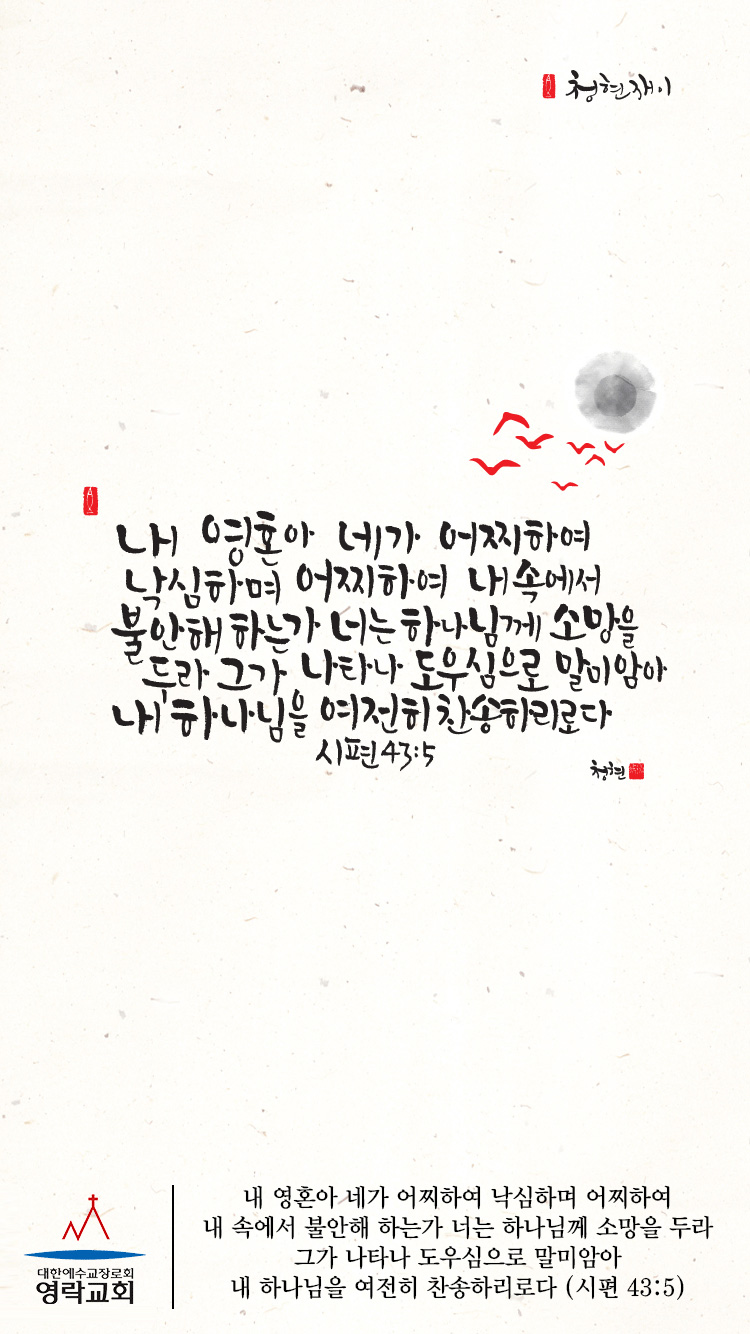 청현재이
내 영혼아 네가 어찌하여
낙심하며 어찌하여 내 속에서
불안해 하는가 너는 하나님께 소망을
두라 그가 나타나 도우심으로 말미암아
내 하나님을 여전히 찬송하리로다
시편 43:5
청현
대한예수교장로회
영락교회
내 영혼아 네가 어찌하여 낙심하며 어찌하여
내 속에서 불안해 하는가 너는 하나님께 소망을 두라
그가 나타나 도우심으로 말미암아
내 하나님을 여전히 찬송하리로다 (시편 43:5)